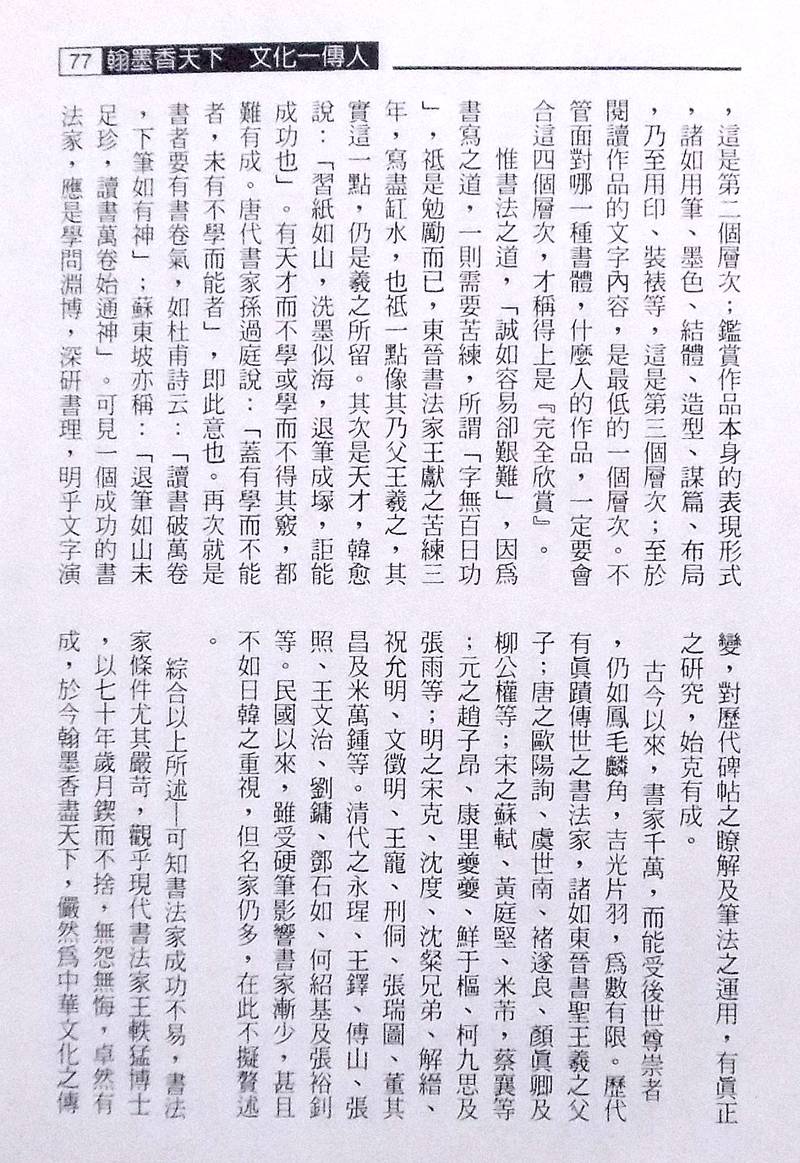 77 翰墨香天下　文化一傳人
，這是第二個層次；鑑賞作品本身的表現形式
，諸如用筆、墨色、結體、造型、謀篇、布局
，乃至用印、裝裱等，這是第三個層次；至於
閱讀作品的文字內容，是最低的一個層次。不
管面對哪一種書體，什麼人的作品，一定要會
合這四個層次，才稱得上是『完全欣賞』。
惟書法之道，「誠如容易卻艱難」，因為
書寫之道，一則需要苦練，所謂「字無百日功
」，祗是勉勵而已，東晉書法家王獻之苦練三
年，寫盡缸水，也祗一點像其乃父王羲之，其
實這一點，仍是羲之所留。其次是天才，韓愈
說：「習紙如山，洗墨似海，退筆成塚，詎能
成功也」。有天才而不學或學而不得其竅，都
難有成。唐代書家孫過庭說：「蓋有學而不能
者，未有不學而能者」，即此意也。再次就是
書者要有書卷氣，如杜甫詩云：「讀書破萬卷
，下筆如有神」；蘇東坡亦稱：「退筆如山未
足珍，讀書萬卷始通神」。可見一個成功的書
法家，應是學問淵博，深研書理，明乎文字演
變，對歷代碑帖之瞭解及筆法之運用，有眞正
之研究，始克有成。
古今以來，書家千萬，而能受後世尊崇者
，仍如鳳毛麟角，吉光片羽，為數有限。歷代
有眞蹟傳世之書法家，諸如東晉書聖王羲之父
子；唐之歐陽詢、虞世南、褚遂良、顏眞卿及
柳公權等；宋之蘇軾、黃庭堅、米芾，蔡襄等
；元之趙子昂、康里夔夔、鮮于樞、柯九思及
張雨等；明之宋克、沈度、沈粲兄弟、解縉、
祝允明、文徵明、王寵、刑侗、張瑞圖、董其
昌及米萬鍾等。清代之永瑆、王鐸、傅山、張
照、王文治、劉鏞、鄧石如、何紹基及張裕釗
等。民國以來，雖受硬筆影響書家漸少，甚且
不如日韓之重視，但名家仍多，在此不擬贅述
。
綜合以上所述—可知書法家成功不易，書法
家條件尤其嚴苛，觀乎現代書法家王軼猛博士
，以七十年歲月鍥而不捨，無怨無悔，卓然有
成，於今翰墨香盡天下，儼然為中華文化之傳